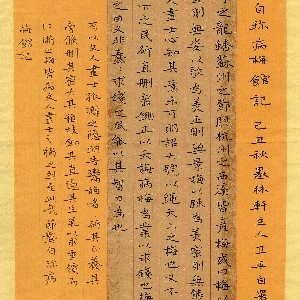 自珍病梅館記 己丑秋 林軒主人 自署
之龍蟠蘇州之鄧尉杭州之西溪皆產梅或曰梅以
直則無姿以欹為美正則無景梅以疏為美密則無態
畫士心知其意未可明詔大號以繩天下之梅也又不
下之民斫直刪密鋤正以殀梅病梅為業以求錢也
之曲又非蠢蠢求錢之民能以其智力為也
有以文人畫士孤癖之隱明告鬻梅者斫其正養其
旁條刪其密夭其稚枝鋤其直遏其生氣以求重價而
江浙之梅皆病文人畫士之禍之烈至此哉 節書自珍病
梅館記